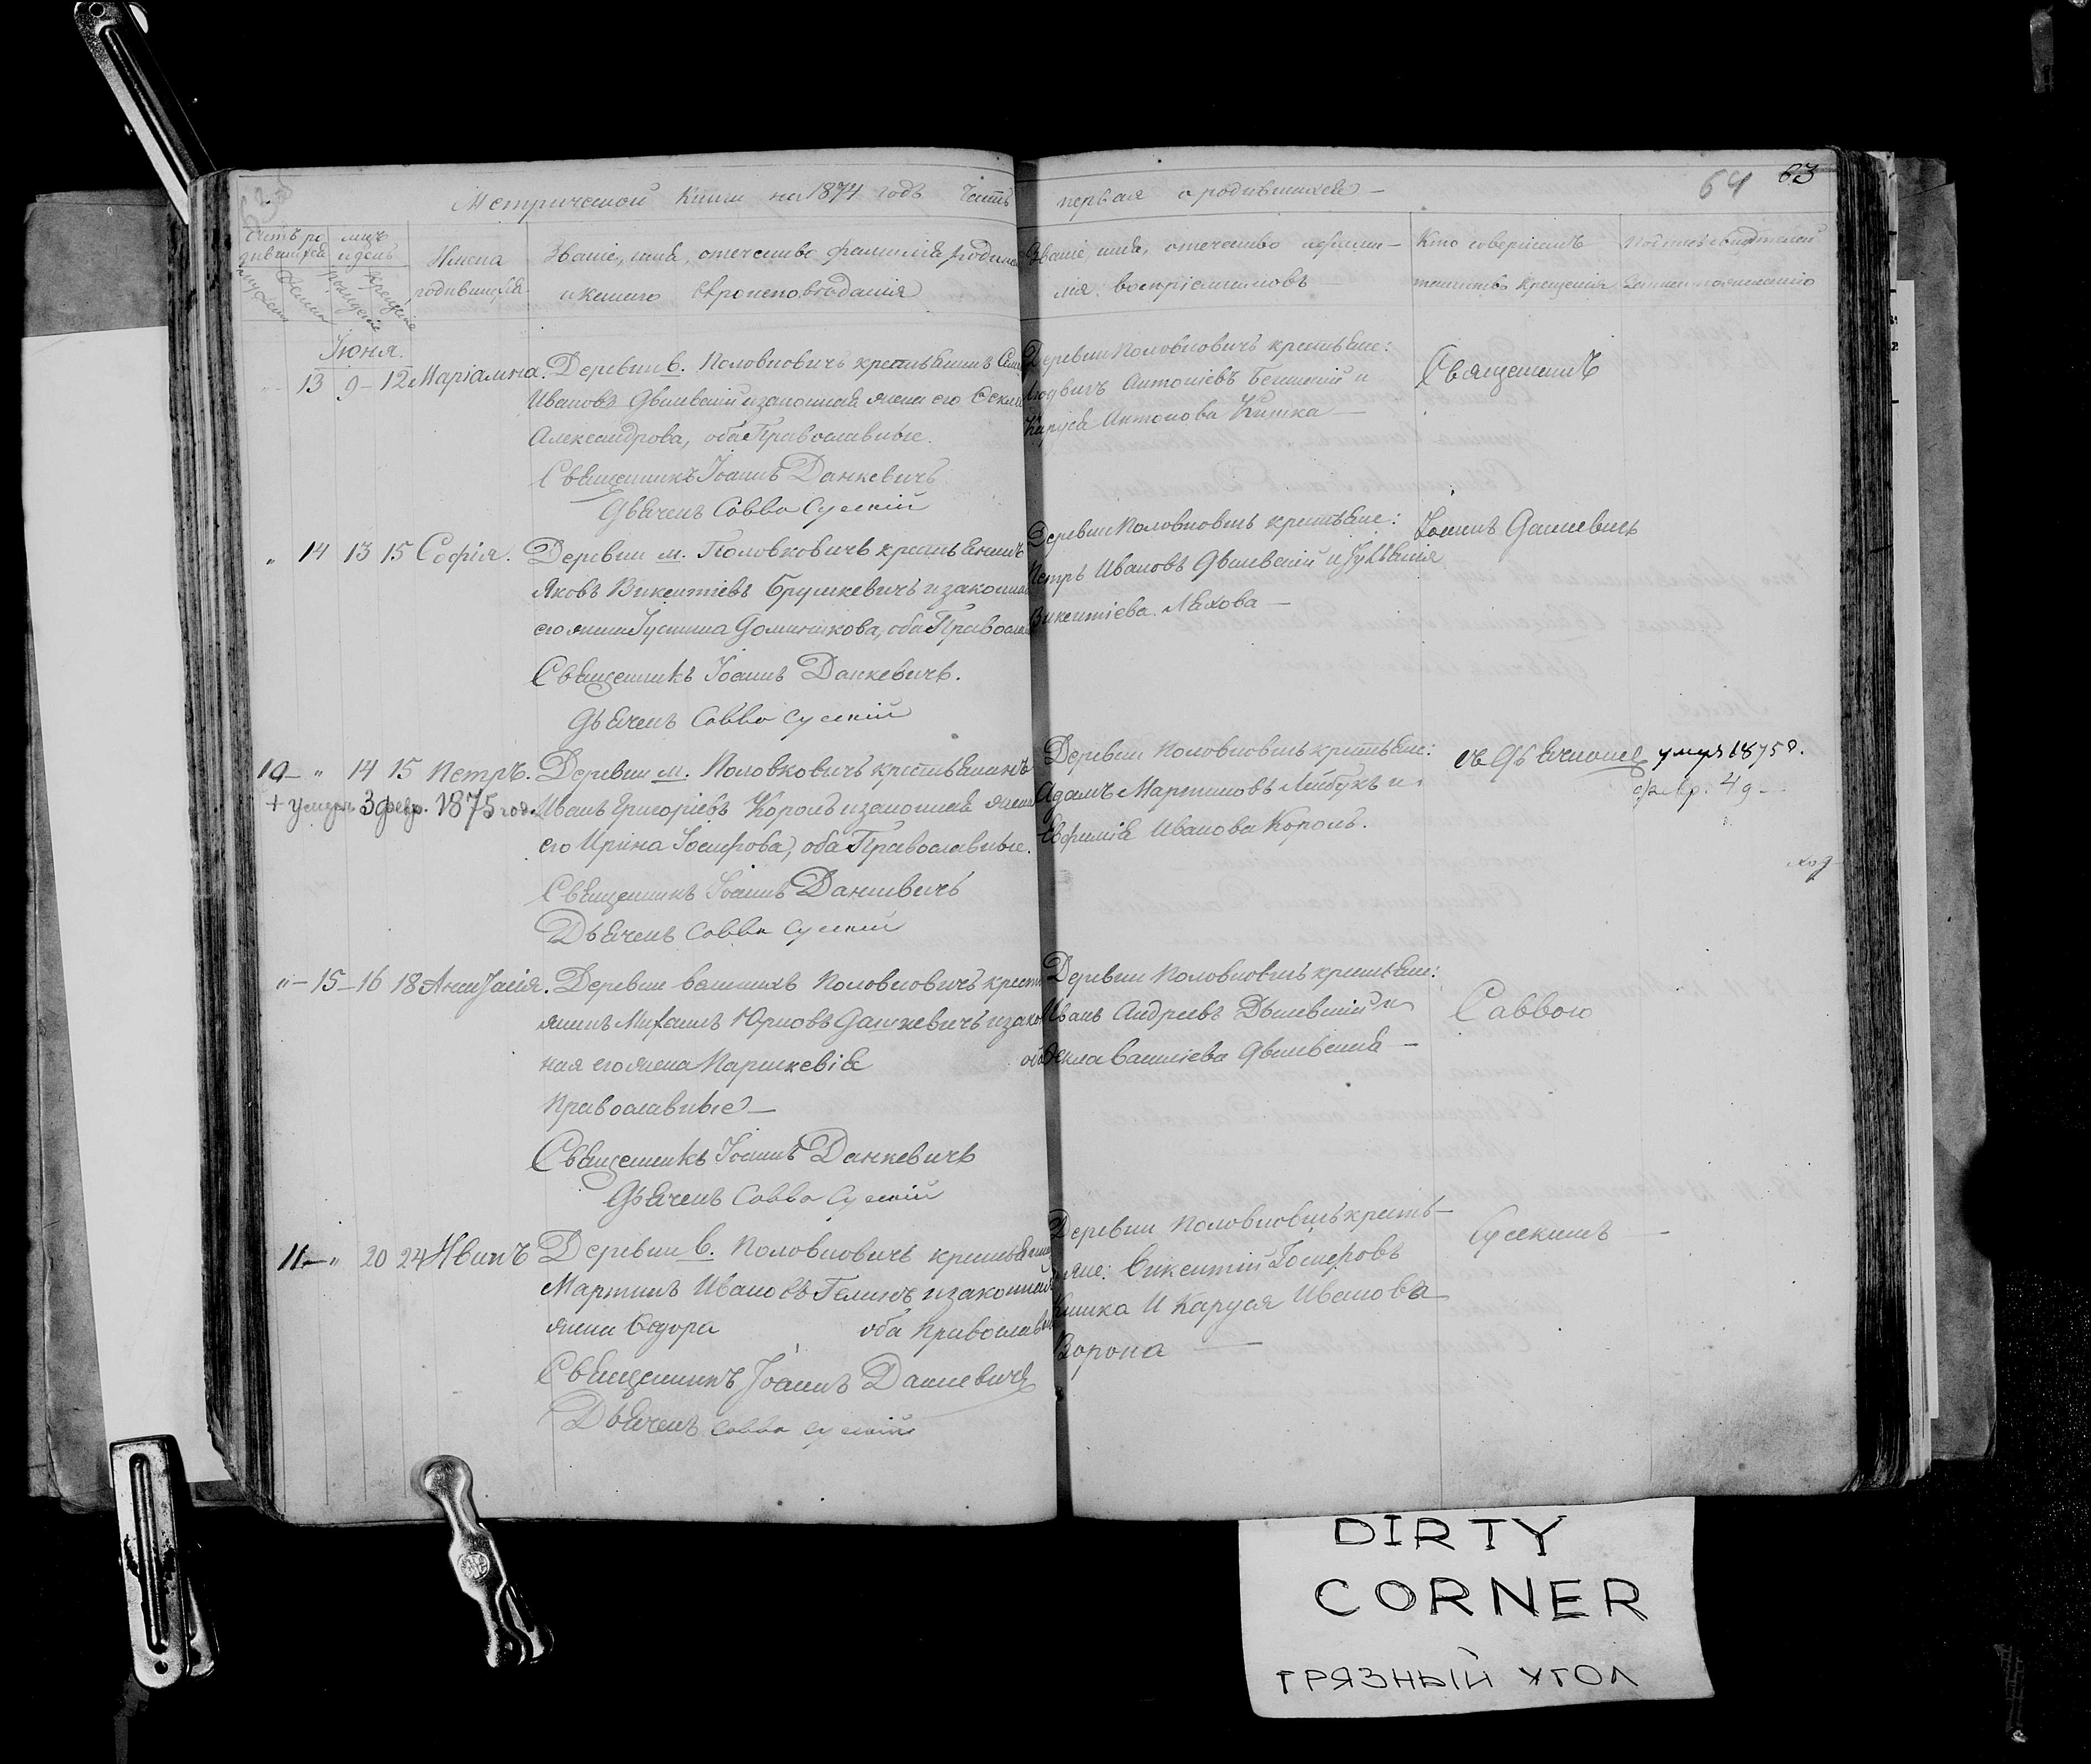 64 63
Метрической Книги на 1874 годъ Часть первая о родившихся
Счетъ родившихся
мѣс. и день
Имена родившихся
Званіе, имя, отечество фамилія родит.
и какого вѣроисповѣданія
Званіе, имя, отечество и фами-
лія воспріемниковъ
Кто совершалъ
таинство крещенія
рожденіе
крещенія
Іюня.
13 9 - 12 Маріамна. Деревни в. Половковичъ крестьянинъ
Ивановъ и законная жена его
Александрова, оба Православные.
Священникъ Іоаннъ Данкевичъ
Дьячекъ Савва Сускій
Деревни Половковичъ крестьяне:
Людвигъ Антоніевъ и
Антонова Кишка —
Священникъ
" 14 13 15 Софія. Деревни м. Половковичъ крестьянинъ
Яковъ Викентіевъ Брушкевичъ и законная
его жена Іустина Доминикова, оба Правосла
Священникъ Іоаннъ Данкевичъ.
Дьячекъ Савва Сускій
Деревни Половковичъ крестьяне:
Петръ Ивановъ и Іуліанія
Викентіева Ляхова —
Іоаннъ Данкевичъ
10 - " 14 15 Петръ. Деревни м. Половковичъ крестьянинъ
+ умеръ 3 февр. 1875 года. Иванъ Григоріевъ Король и законная жена
его Ирина Іосифова, оба Православные.
Священникъ Іоаннъ Данкевичъ
Дьячекъ Савва Сускій
Деревни Половковичъ крестьяне:
Адамъ Мартиновъ и
Евфимія Иванова Король.
съ Дьячкомъ
умеръ 1875 г.
февр. 4 д —
" - 15 - 16 18 Анастасія. Деревни великихъ Половковичъ крест
янинъ Михаилъ Юрковъ Дашкевичъ и закон
ная его жена Параскевія оба
Православные —
Священникъ Іоаннъ Данкевичъ
Дьячекъ Савва Сускій
Деревни Половковичъ крестьяне:
Иванъ Андреевъ и
Текла Василіева —
Саввою
11 - " 20 24 Иванъ Деревни в. Половковичъ крестьянинъ
Мартинъ Ивановъ и законная
жена Ѳедора оба Православн
Священникъ Іоаннъ Данкевичъ
Дьячекъ Савва Сускій
Деревни Половковичъ кресть-
яне: Викентій Іосифовъ
Кишка И Каруся Иванова
Ворона —
Сускимъ —
DIRTY
CORNER
ГРЯЗНЫЙ УГОЛ